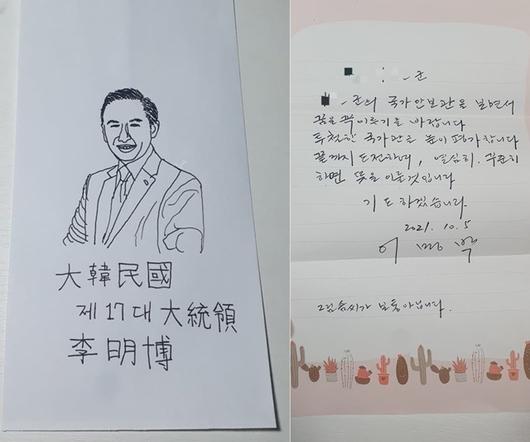 大韓民國
제17대 大統領
李明博
군
군의 국가안보관을 보면서
꿈을 꼭 이루기를 바랍니다
투철한 국가관을 높이 평가합니다
끝까지 도전하며, 열심히, 꾸준히
하면 뜻을 이룰것입니다
기도하겠습니다.
2021. 10. 5
이 명 박
그림솜씨가 보통아닙니다.